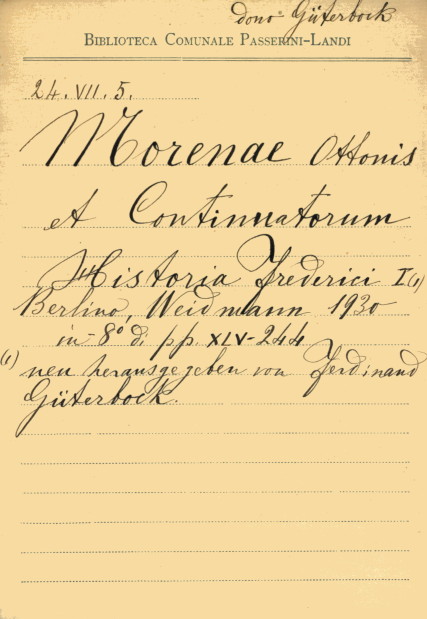 dono Güterbock
BIBLIOTECA COMUNALE PASSERINI-LANDI
24. VII. 5.
Morenae Ottonis
et Continuatorum
Historia Frederici I (1)
Berlino, Weidmann 1930
in-8° di pp. XLV-244
(1) neu herausgegeben von Ferdinand
Güterbock.